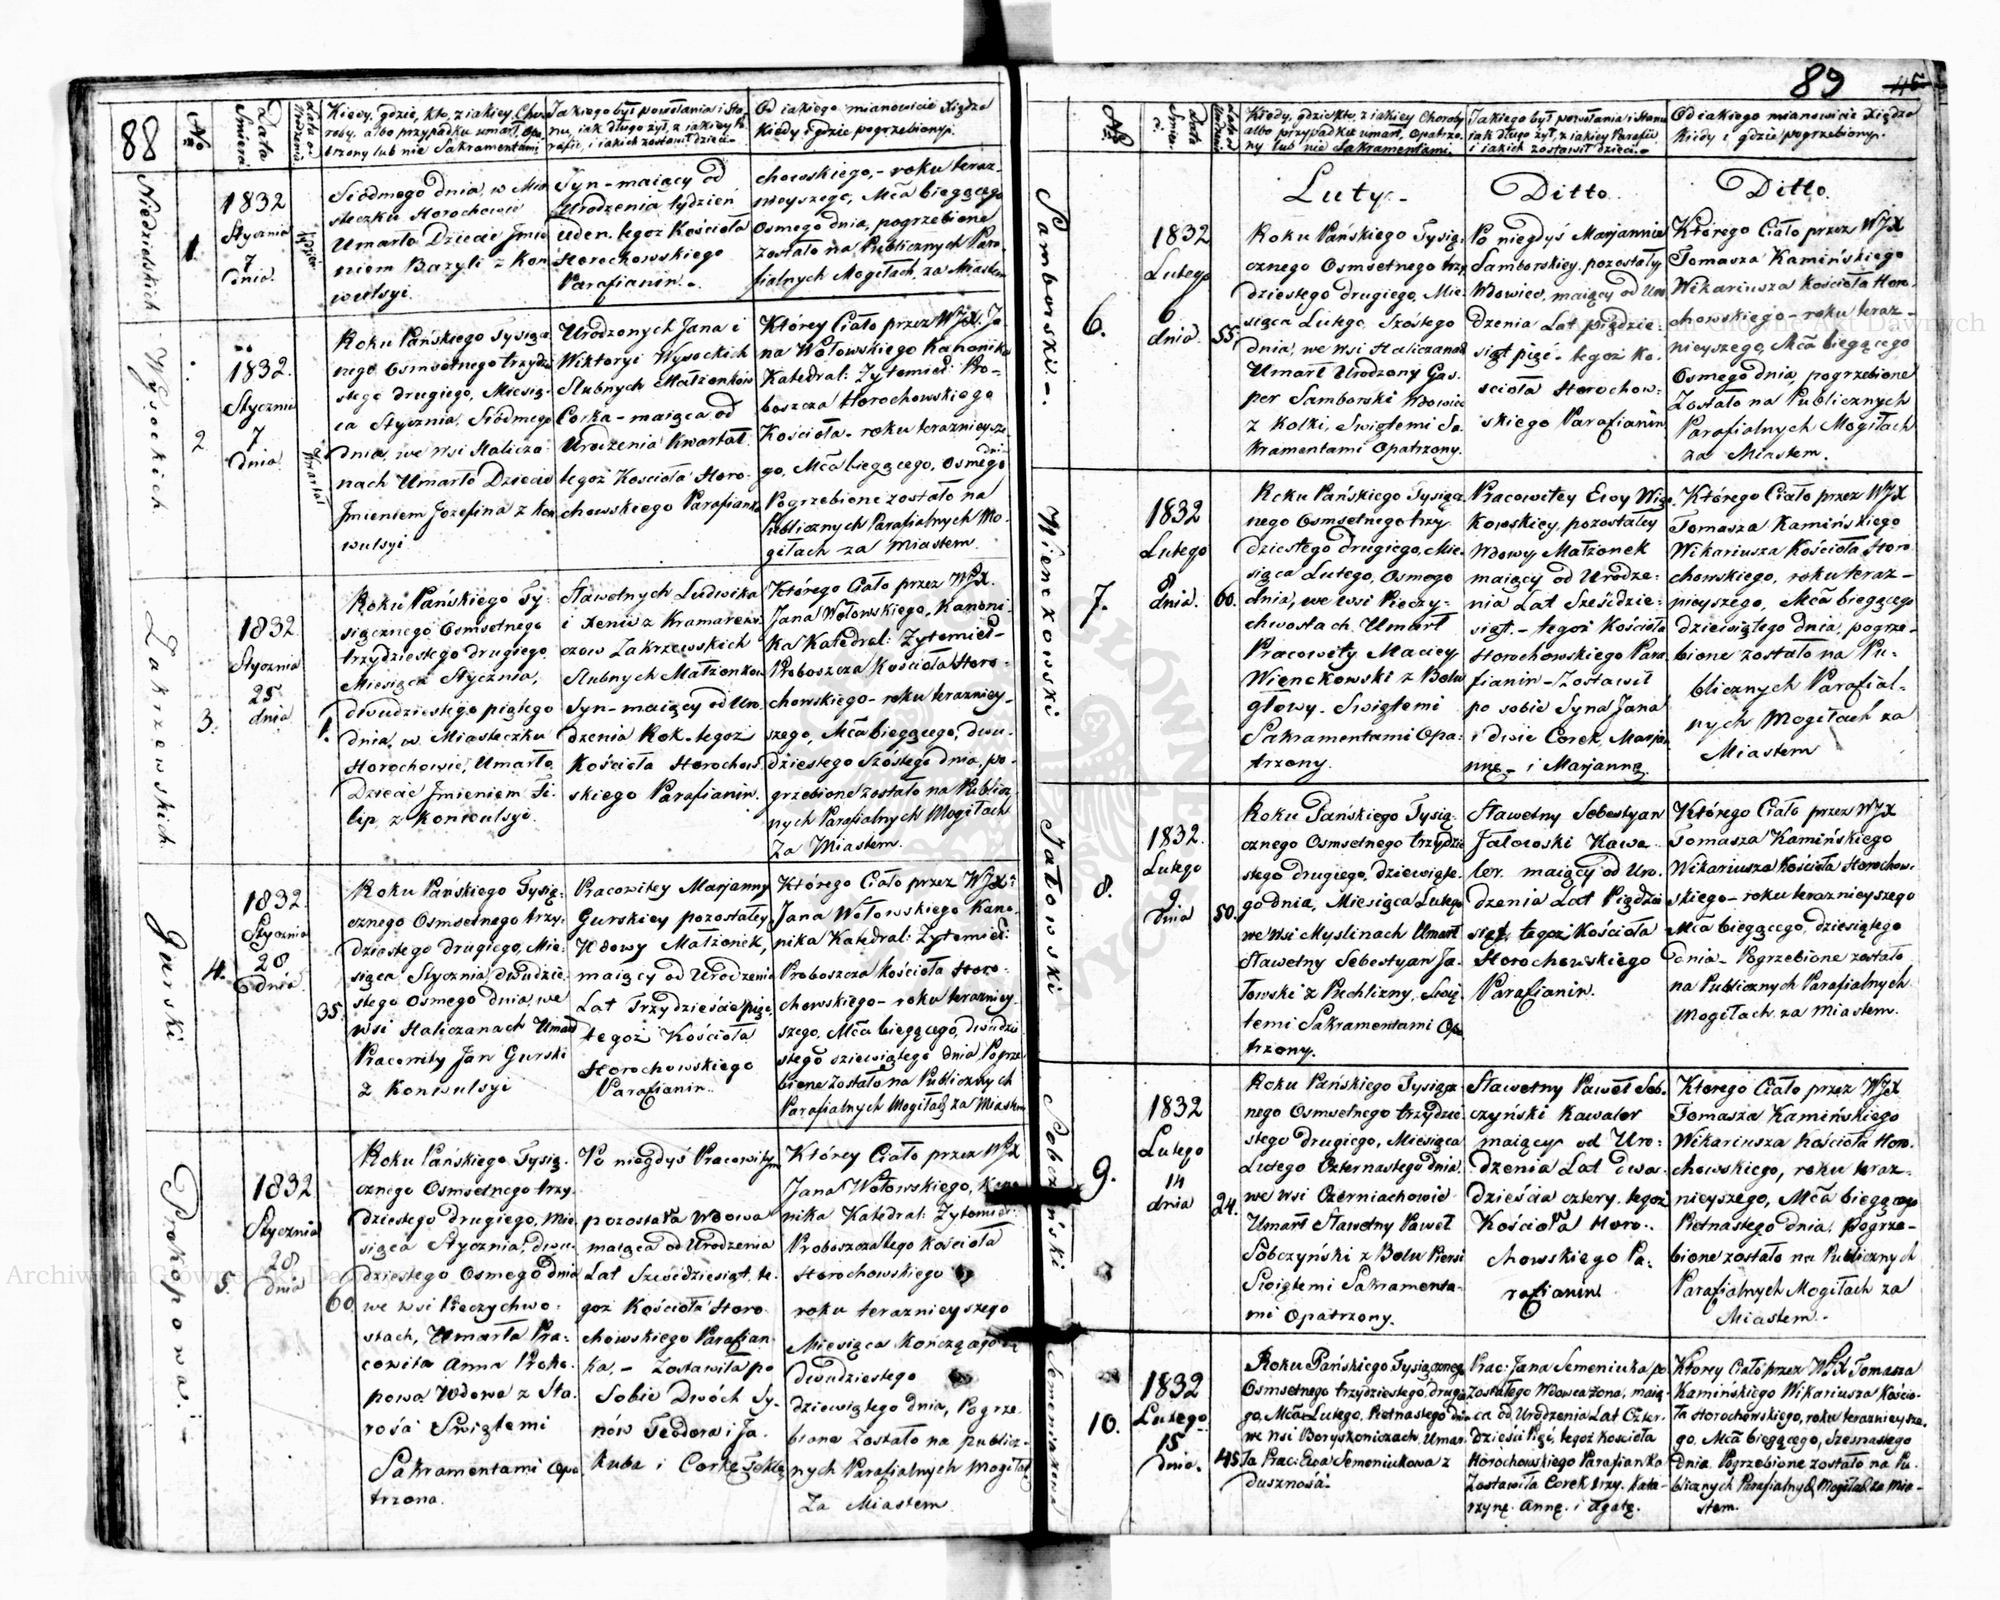 88
No
Data Śmierci
Kiedy, gdzie, kto, z iakiey Cho-
roby, albo przypadku umarł, Opa-
trzony lub nie Sakramentami
Jakiego był powołania i Sta-
nu, iak długo żył, z iakiey Pa-
rafii, i iakich zostawił dzieci.
Od iakiego mianowicie Xiędza
Kiedy i gdzie pogrzebiony.
Niedzielskich
1.
1832
Stycznia
7
dnia
tydzień
Siódmego dnia, w Mia
steczku Horochowie
Umarło Dziecie Jmie
niem Bazyli z Kon
wulsyi.
Syn - maiący od
Urodzenia tydzień
ieden. tegoż Kościoła
Horochowskiego
Parafianin.
chowskiego, - roku teraz-
nieyszego, Mca biegącego
Osmego dnia, pogrzebione
Zostało na Publicznych Para-
fialnych Mogiłach, za Miastem
Wysockich
2
1832.
Stycznia
7
dnia
Kwartał
Roku Pańskiego Tysiącz
nego Osmsetnego trzydzie
stego drugiego, Miesią-
ca Stycznia, Siódmego
dnia, we wsi Halicza-
nach Umarło Dziecie
Jmieniem Jozefina z kon
wulsyi
Urodzonych Jana i
Wiktoryi Wysockich
Slubnych Małżonków
Corka - maiąca od
Urodzenia Kwartał
tegoż Kościoła Horo-
chowskiego Parafianka
Którey Ciało przez WJX. Ja
na Wołowskiego Kanonika
Katedral: Zytomier: Pro-
boszcza Horochowskiego
Kościoła - roku teraznieysze-
go, Mca biegącego, Osmego dnia
Pogrzebione zostało na
Publicznych Parafialnych Mo-
giłach za Miastem.
Zakrzewskich
3.
1832
Stycznia
25
dnia
1.
Roku Pańskiego Ty-
siącznego Osmsetnego
trzydziestego drugiego,
Miesiąca Stycznia,
dwudziestego piątego
dnia, w Miasteczku
Horochowie, Umarło
Dziecie Jmieniem Fi-
lip z Konwulsyi.
Sławetnych Ludwika
i Xeni z Kramarzew
czow Zakrzewskich
Slubnych Małżonkow
Syn - maiący od Uro-
dzenia Rok - tegoż
Kościoła Horochow-
skiego Parafianin.
Którego Ciało przez WJX.
Jana Wołowskiego, Kanoni-
ka Katedral: Zytomier-
Proboszcza Kościoła Horo-
chowskiego - roku terazniey-
szego, Mca biegącego, dwu-
dziestego Szóstego dnia, po-
grzebione zostało na Publicz-
nych Parafialnych Mogiłach
Za Miastem.
Gurski
4.
1832.
Stycznia
28
dnia
35.
Roku Pańskiego Tysią-
cznego Osmsetnego trzy-
dziestego drugiego, Mie-
siąca Stycznia, dwudzie-
stego Osmego dnia, we
wsi Haliczanach Umarł
Pracowity Jan Gurski
z Konwulsyi
Pracowitey Marjanny
Gurskiey pozostałey
Wdowy Małżonek,
maiący od Urodzenia
Lat Trzydzieście pięć,
tegoż Kościoła
Horochowskiego
Parafianin.
Którego Ciało przez WJX
Jana Wołowskiego Kano-
nika Katedral: Zytomier:
Proboszcza Kościoła Horo-
chowskiego - roku teraźniey-
szego, Mca biegącego, dwudzie-
stego dziewiątego dnia Pogrze
bione Zostało na Publicznych
Parafialnych Mogiłach za Miastem
Prokopowa.
5.
1832
Stycznia
28
dnia
60
Roku Pańskiego Tysią-
cznego Osmsetnego trzy-
dziestego drugiego, Mie
siąca Stycznia, dwu-
dziestego Osmego dnia
we wsi Pieczychwo-
stach, Umarła Pra-
cowita Anna Proko-
powa Wdowa z Sta-
rości Swiętemi
Sakramentami Opa-
trzona.
Po niegdyś Pracowitym
pozostała Wdowa
maiąca od Urodzenia
Lat Sześćdziesiąt te-
goż Kościoła Horo-
chowskiego Parafian-
ka, - Zostawiła po
Sobie Dwóch Sy-
nów Teodora i Ja-
kuba i Corkę Teklę
Którey Ciało przez WJX
Jana Wołowskiego, Kano-
nika Katedral: Zytomier:
Proboszcza tego Kościoła
Horochowskiego
roku teraznieyszego
Miesiąca Kończącego się
dwudziestego
dziewiątego dnia, Pogrze
bione Zostało na publicz-
nych Parafialnych Mogiłach
Za Miastem
89
No
Data Śmier.
Kiedy, gdzie kto, z iakiey Choroby
albo przypadku umarł, Opatrzo-
ny lub nie Sakramentami.
Jakiego był powołania i stanu
iak długo żył, z iakiey Parafii
i iakich zostawił dzieci.
Od iakiego mianowicie Xiędza
Kiedy i gdzie pogrzebiony.
Luty.
Ditto.
Ditto.
Samborski.
6.
1832
Lutego
6
dnia
55.
Roku Pańskiego Tysią-
cznego Osmsetnego trzy
dziestego drugiego, Mie-
siąca Lutego, Szóstego
dnia, we wsi Haliczanach
Umarł Urodzony Gas-
per Samborski Wdowiec
z Kolki, Swiętemi Sa-
kramentami Opatrzony.
Po niegdyś Marjannie
Samborskiey, pozostały
Wdowiec, maiący od Uro
dzenia Lat pięćdzie-
siąt pięć - tegoż Ko-
ścioła Horochow-
skiego Parafianin
Którego Ciało przez WJX
Tomasza Kamińskiego
Wikariusza Kościoła Horo-
chowskiego - roku teraz-
nieyszego, Mca biegącego
Osmego dnia, pogrzebione
Zostało na Publicznych
Parafialnych Mogiłach
za Miastem.
Wienckowski
7.
1832
Lutego
8
dnia.
60.
Roku Pańskiego Tysiącz
nego Osmsetnego trzy
dziestego drugiego, Mie-
siąca Lutego, Osmego
dnia, we wsi Pieczy-
chwostach Umarł
Pracowity Maciey
Wienckowski z Bolu
głowy - Swiętemi
Sakramentami Opa-
trzony.
Pracowitey Ewy Więc
kowskiey, pozostałey
Wdowy Małżonek
maiący od Urodze-
nia Lat Sześćdzie-
siąt. - tegoż Kościoła
Horochowskiego Para
fianin - Zostawił
po sobie Syna Jana
i dwie Corek, Marjan
nę - i Marjannę.
Którego Ciało przez WJX
Tomasza Kamińskiego
Wikariusza Kościoła Horo
chowskiego, roku teraz-
nieyszego, Mca biegącego
dziewiątego dnia, pogrze-
bione zostało na Pu-
blicznych Parafial-
nych Mogiłach za
Miastem
Jałowski
8.
1832.
Lutego
9
dnia
50.
Roku Pańskiego Tysią-
cznego Osmsetnego trzydzie
stego drugiego, dziewiąte-
go dnia, Miesiąca Lutego
we wsi Myslinach Umarł
Sławetny Sebestyan Ja-
łowski z Puchlizny, Swię-
temi Sakramentami Opa
trzony.
Sławetny Sebestyan
Jałowski Kawa-
ler. maiący od Uro-
dzenia Lat Pięćdzie
siąt, tegoż Kościoła
Horochowskiego
Parafianin.
Którego Ciało przez WJX
Tomasza Kamińskiego
Wikariusza Kościoła Horochow-
skiego - roku teraznieyszego
Mca biegącego, dziesiątego
dnia - Pogrzebione zostało
na Publicznych Parafialnych
Mogiłach za Miastem.
Sobczyński
9.
1832
Lutego
14
dnia
24.
Roku Pańskiego Tysiącz-
nego Osmsetnego trzydzie-
stego drugiego, Miesiąca
Lutego Czternastego dnia
we wsi Czerniachowie
Umarł Sławetny Paweł
Sobczyński z Bolu Piersi
Swiętemi Sakramenta-
mi Opatrzony.
Sławetny Paweł Sob-
czyński Kawaler
maiący od Uro-
dzenia Lat dwa-
dzieścia cztery. tegoż
Kościoła Horo-
chowskiego Pa-
rafianin
Ktorego Ciało przez WJX
Tomasza Kamińskiego
Wikariusza Kościoła Horo-
chowskiego, roku teraz-
nieyszego, Mca biegącego
Pietnastego dnia, pogrze-
bione zostało na Publicznych
Parafialnych Mogiłach za
Miastem.
Semeniukowa
10.
1832
Lutego
15
dnia.
45.
Roku Pańskiego Tysiącznego
Osmsetnego trzydziestego drugie
go, Mca Lutego, Pietnastego dnia
we wsi Boryskowiczach, Umar-
ła Prac: Ewa Semeniukowa z
duszności.
Prac: Jana Semeniuka po
Zostałego Wdowca żona, maią-
ca od Urodzenia Lat Czter-
dzieści Pięć, tegoż Kościoła
Horochowskiego Parafianka
Zostawiła Corek trzy. Kata-
rzynę. Annę. i Agatę.
Ktorey Ciało przez WJX Tomasza
Kamińskiego Wikariusza Kościo-
ła Horochowskiego, roku teraznieysze-
go. Mca biegącego, Szesnastego
dnia. Pogrzebione zostało na Pu-
blicznych Parafialnych Mogiłach za Mia-
stem.
Archiwum Główne Akt Dawnych